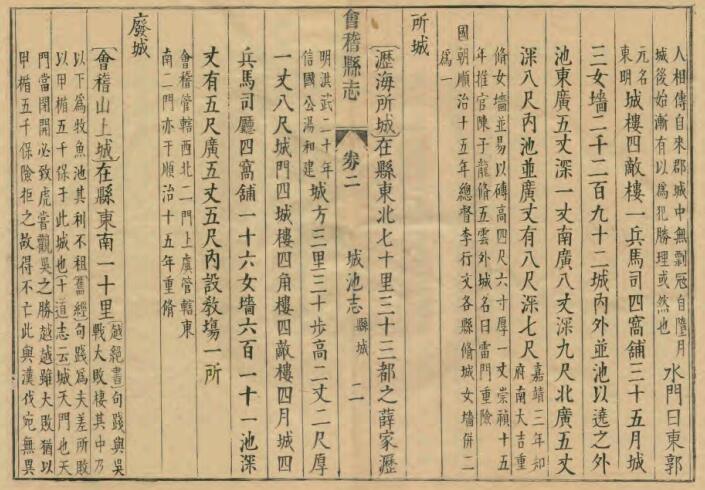 人相傳自來郡城中無剽冦自隳月
城後始漸有以為犯勝理或然也
水門曰東郭
元名
東明
城樓四敵樓一兵馬司四窩舖三十五月城
三女墻二千二百九十二城內外並池以遶之外
池東廣五丈深一丈南廣八丈深九尺北廣五丈
深八尺內池並廣丈有八尺深七尺
嘉靖三年知
府南大吉重
脩女墻並易以磚高四尺六寸厚一丈崇禎十五
年推官陳子龍脩五雲外城名曰雷門重險
國朝順治十五年總督李行文各縣脩城女墻併二
為一
所城
瀝海所城在縣東北七十里三十三都之薛家瀝
會稽縣志
卷二
城池志
縣城
二
明洪武二十年
信國公湯和建
城方三里三十步高二丈二尺厚
一丈八尺城門四城樓四角樓四敵樓四月城四
兵馬司廳四窩舖一十六女墻六百一十一池深
丈有五尺廣五丈五尺內設教塲一所
會稽管轄西北二門上虞管轄東
南二門亦于順治十五年重脩
廢城
會稽山上城在縣東南一十里
越絕書句踐與吳
戰大敗棲其中乃
以下為牧魚池其利不租舊經句踐為夫差所敗
以甲楯五千保于此城也十道志云城天門也天
門當閉開必致虎嘗觀吳之勝越越雖大敗猶以
甲楯五千保險拒之故得不亡此與漢伐宛無異